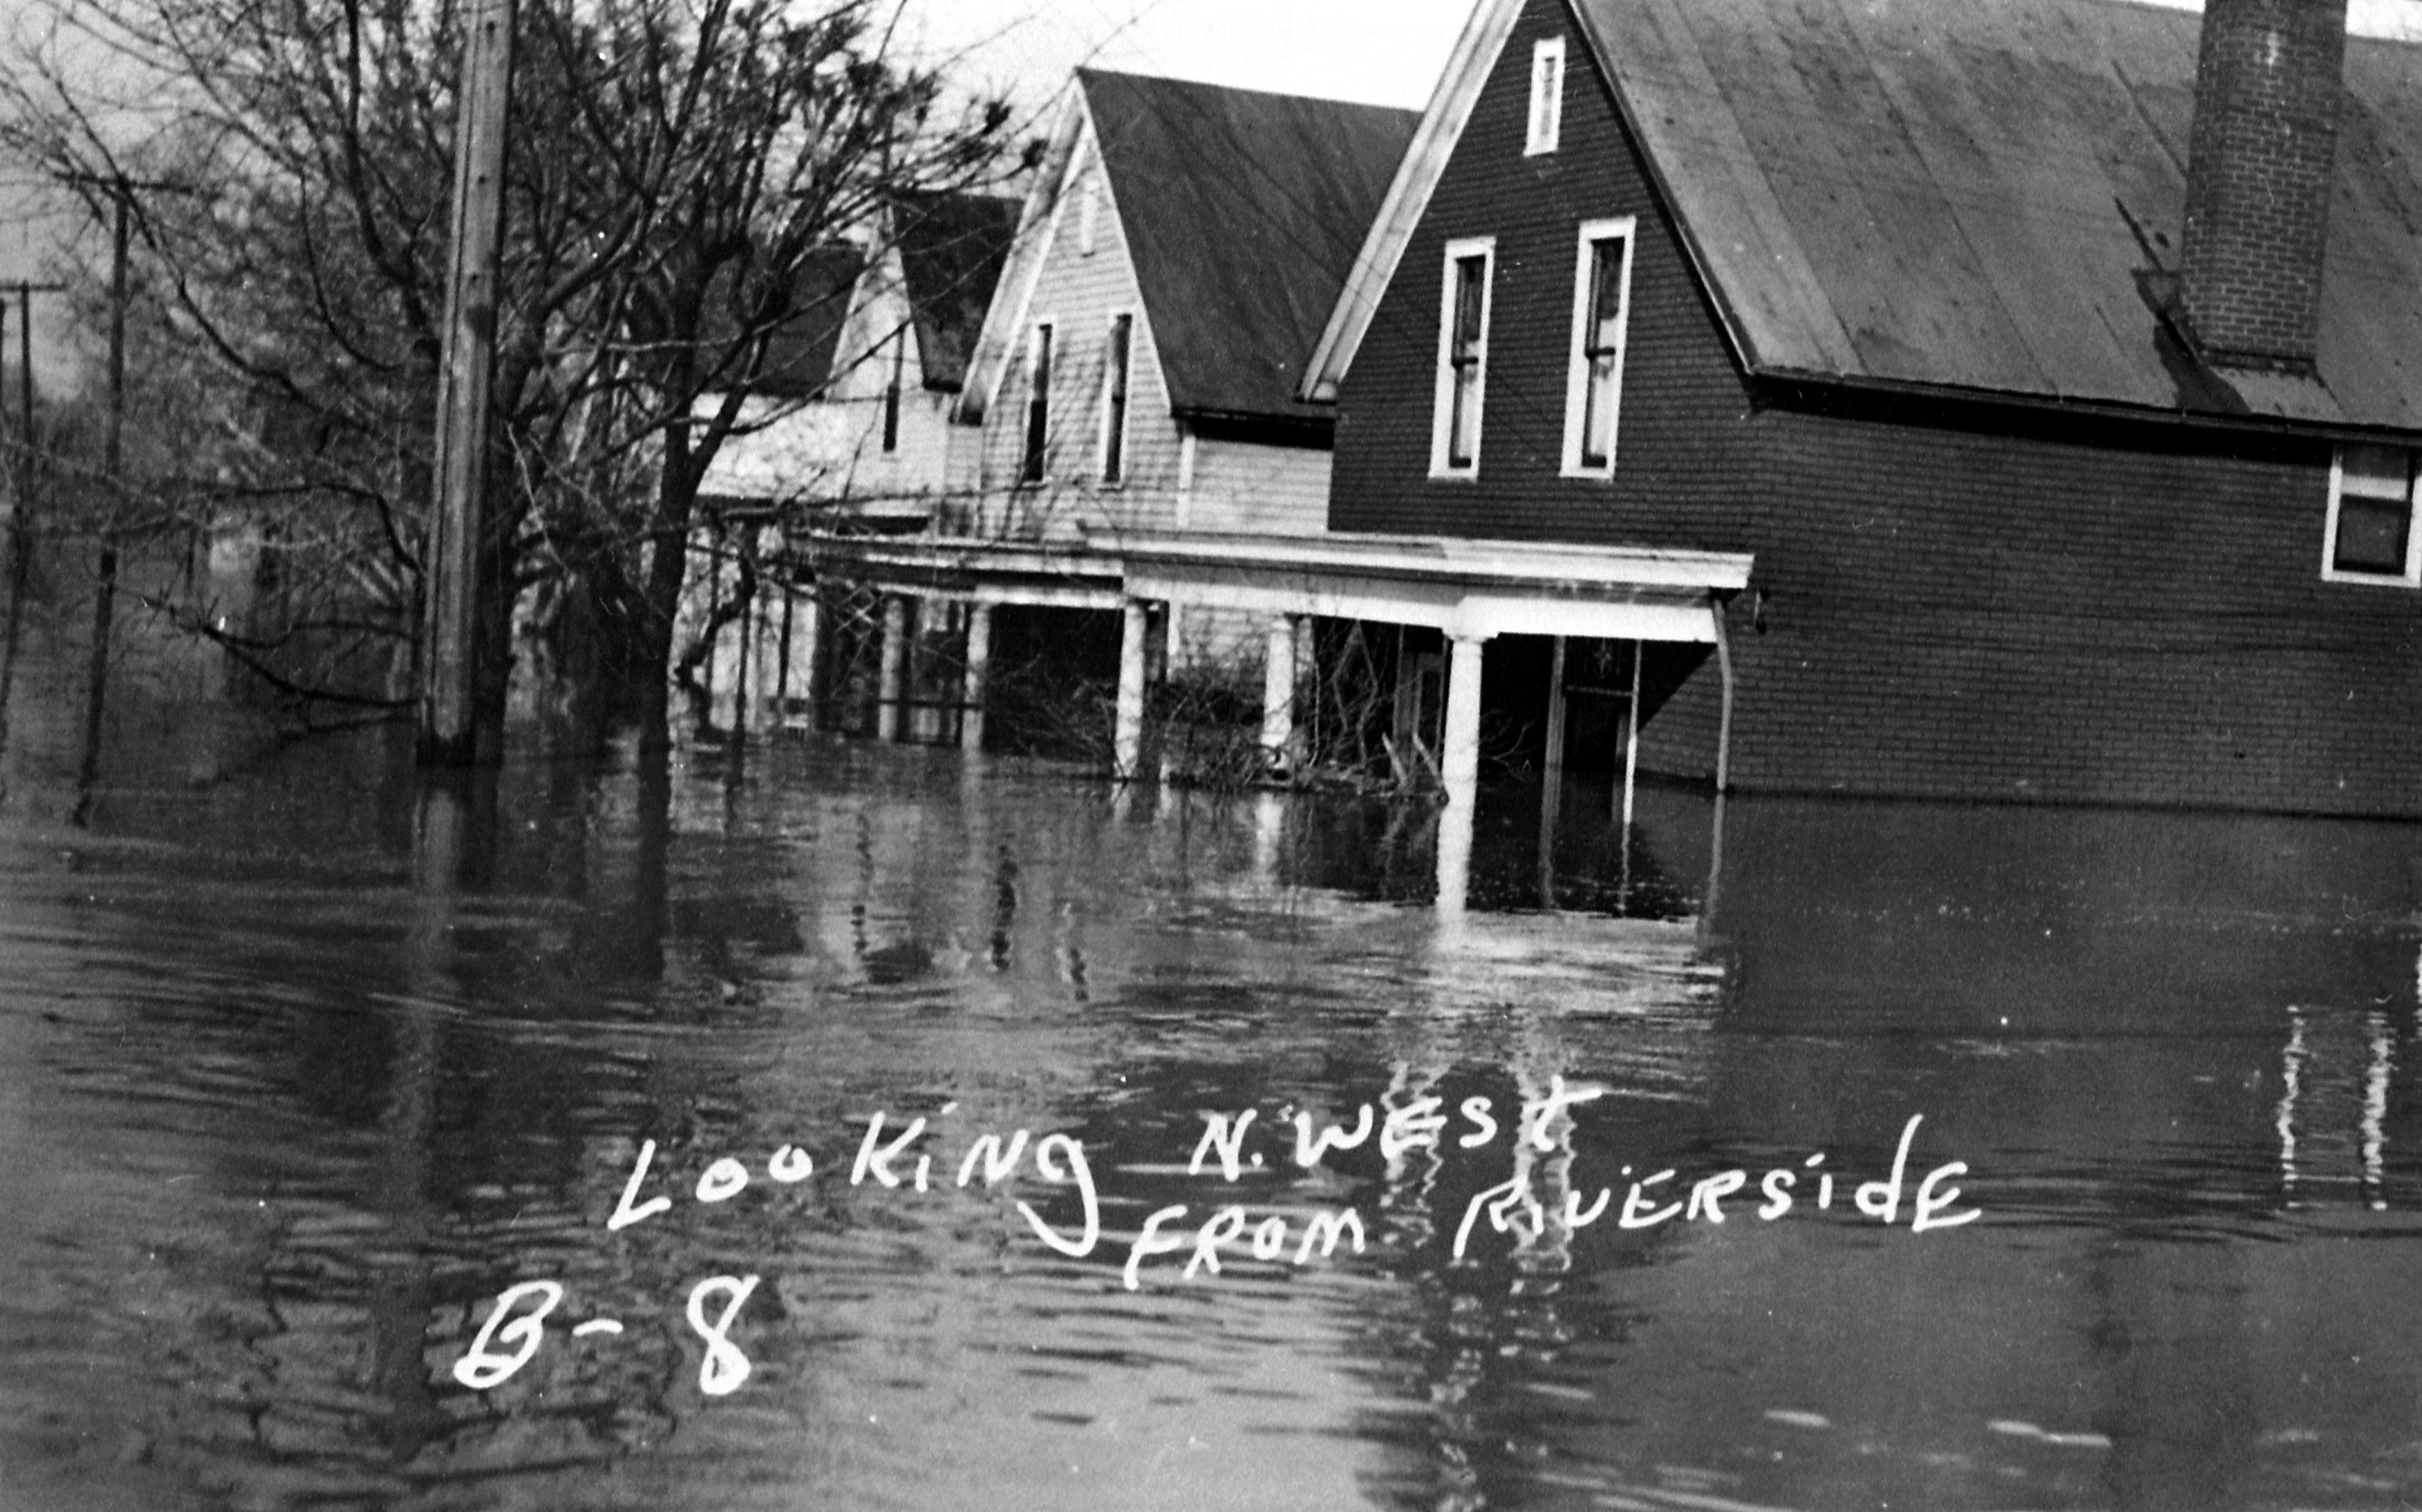 LooKiNg N.WESt
FROM RiVERSidE
B-8